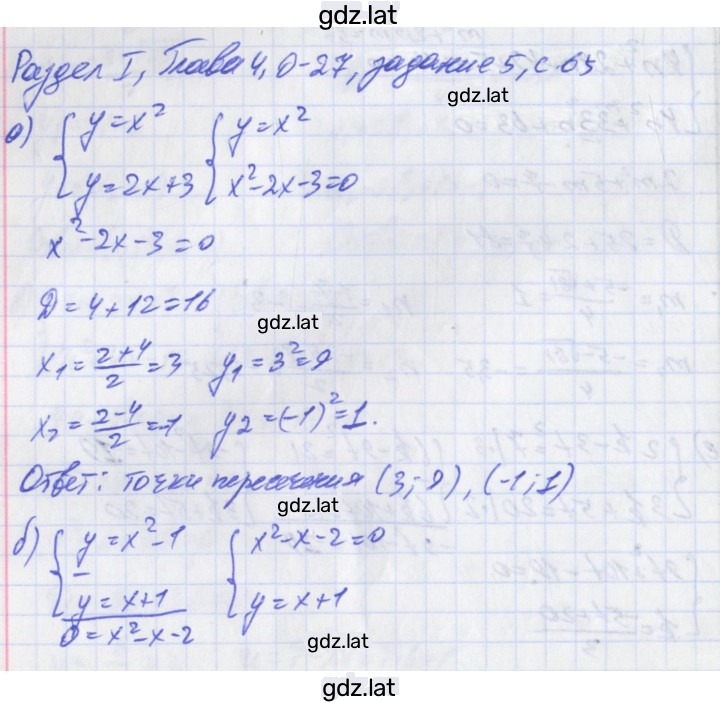 gdz.lat
Раздел I, Глава 4, О-27, задание 5, с 65
gdz.lat
а) { y = x² { y = x²
y = 2x+3 x²-2x-3=0
x²-2x-3=0
D = 4+12=16
gdz.lat
x₁ = (2+4)/2 = 3 y₁ = 3² = 9
x₂ = (2-4)/2 = -1 y₂ = (-1)² = 1.
Ответ: точки пересечения (3; 9), (-1; 1)
gdz.lat
б) { y = x²-1 { x²-x-2=0
– y = x+1 y = x+1
0 = x²-x-2
gdz.lat
gdz.lat